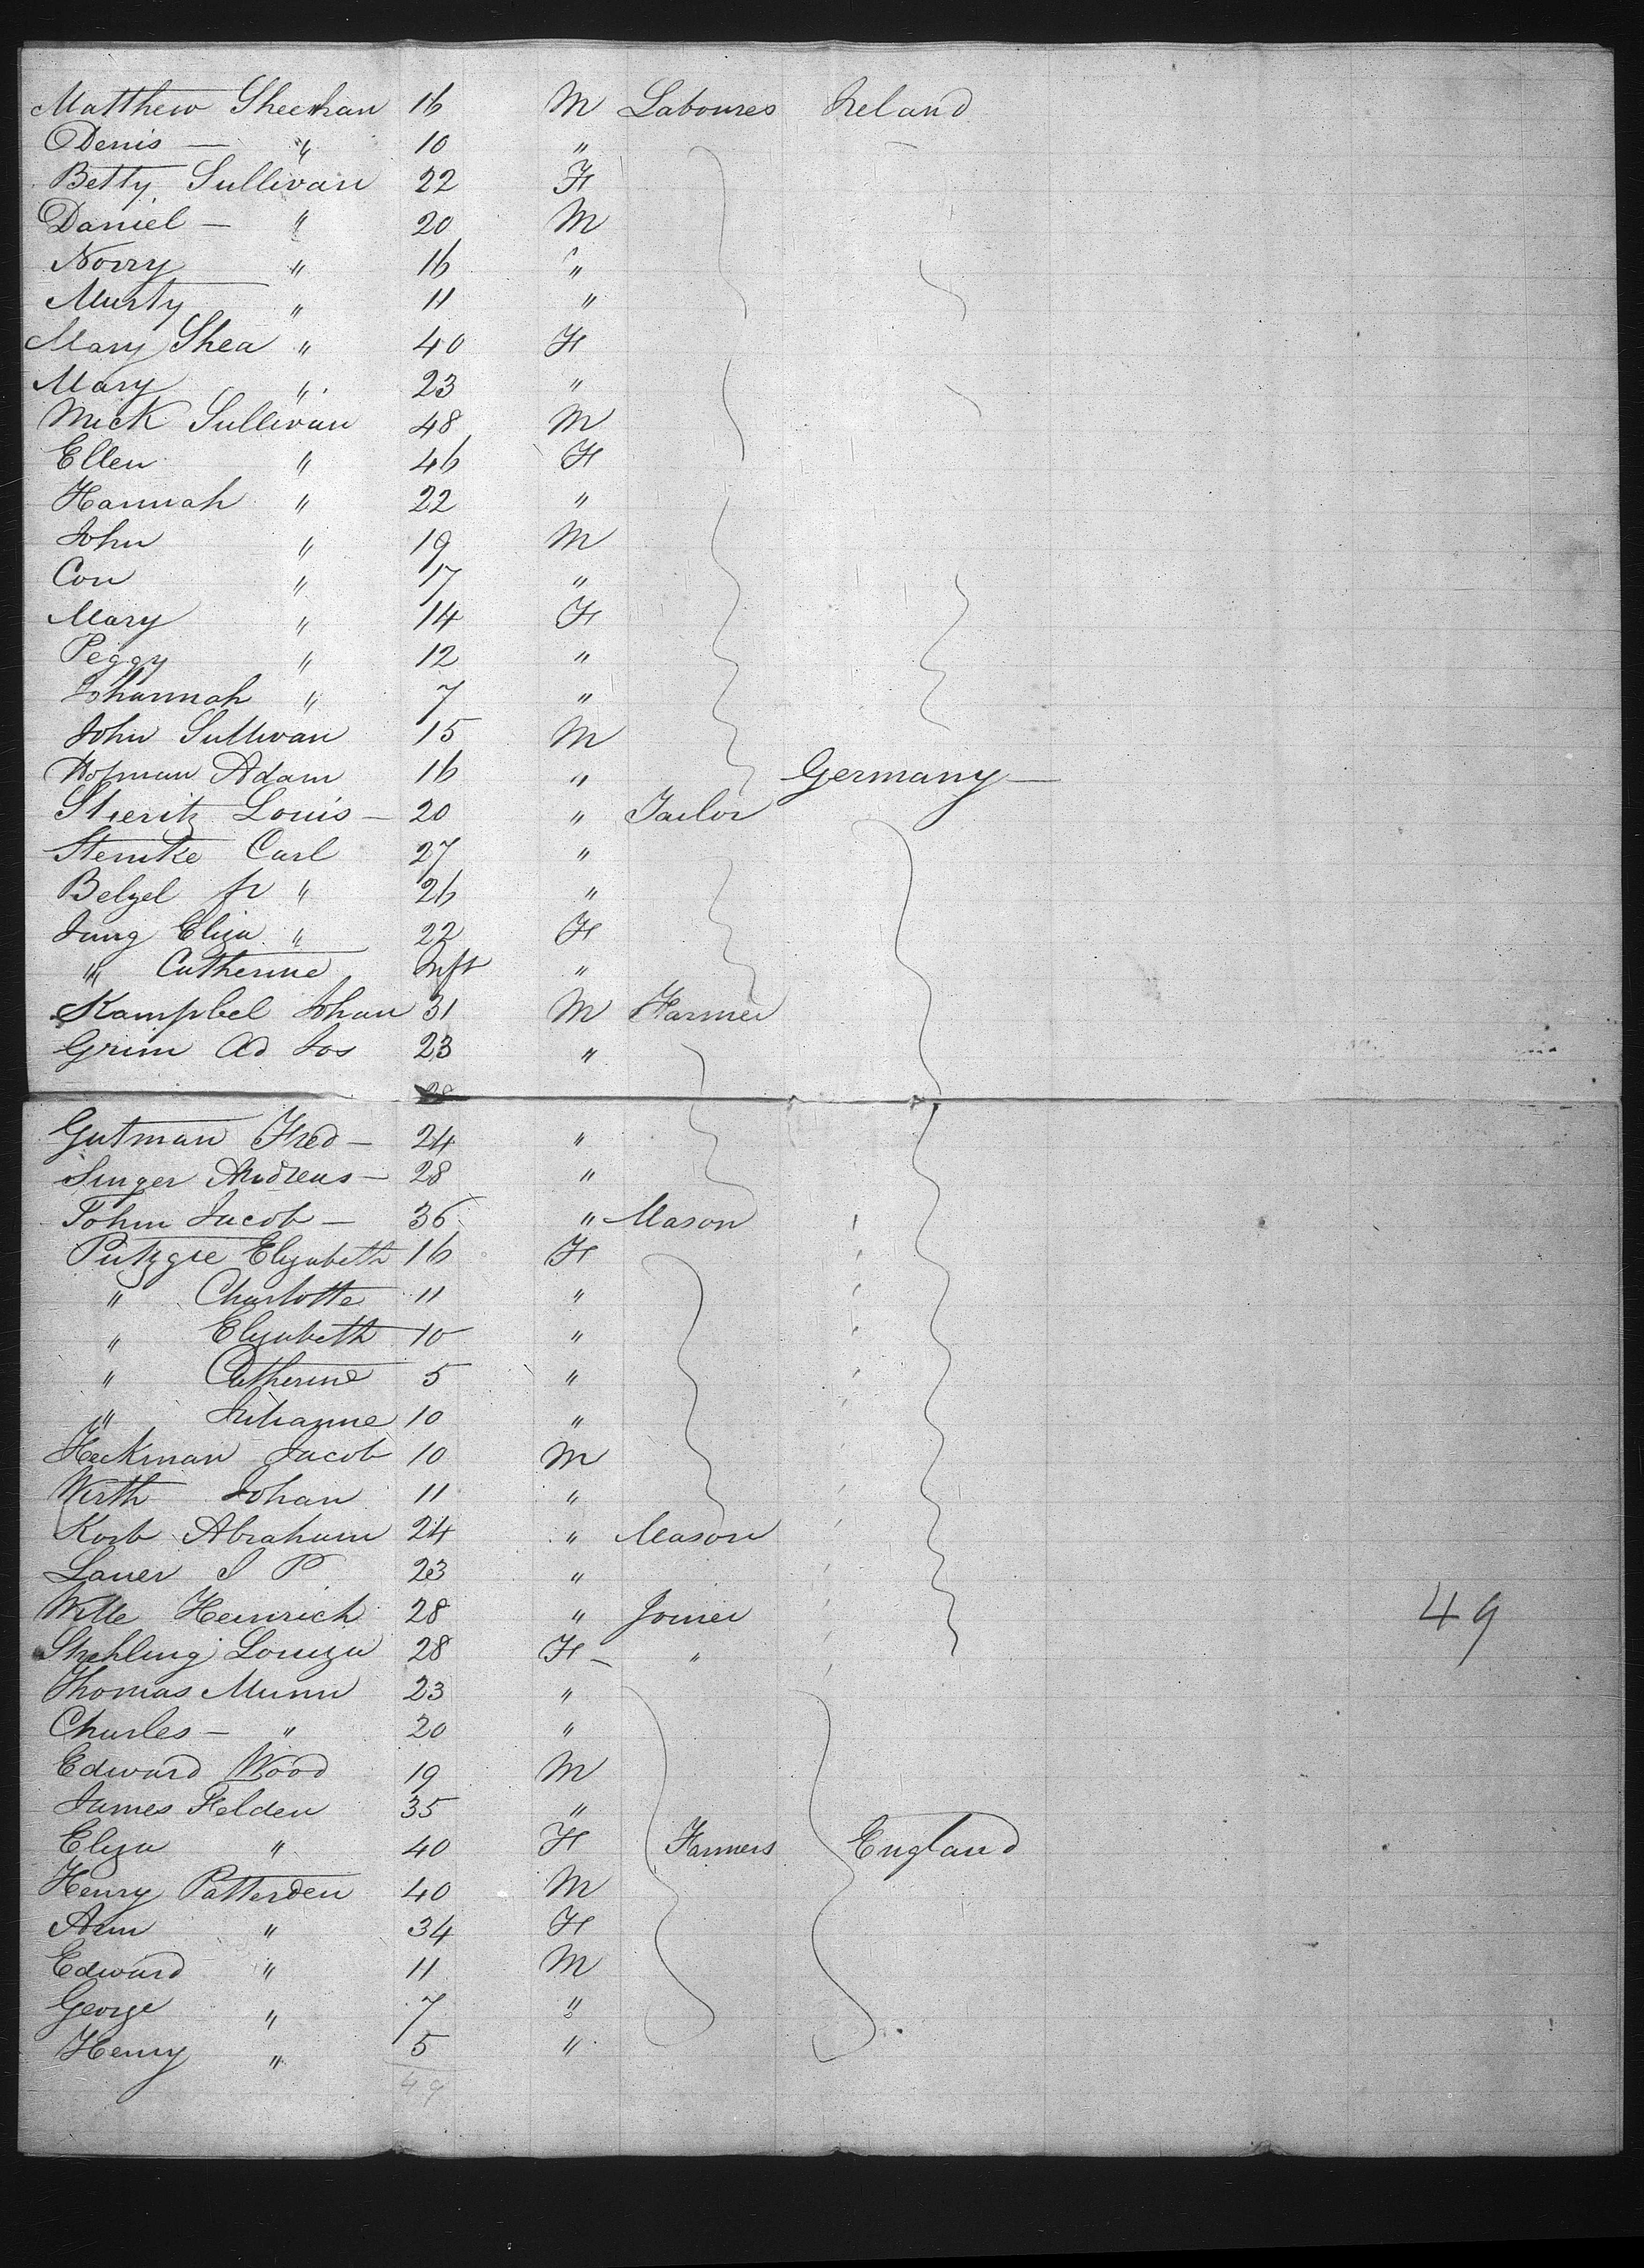 Matthew Sheehan 16 M Laboures Ireland
Denis — " 10 "
Betty Sullivan 22 F
Daniel — " 20 M
Norry " 16 "
Murty " 11 "
Mary Shea " 40 F
Mary " 23 "
Mick Sullivan 48 M
Ellen " 46 F
Hannah " 22 "
John " 19 M
Con " 17 "
Mary " 14 F
Peggy " 12 "
Johannah " 7 "
John Sullivan 15 M
Hofman Adam 16 " Germany —
Louis — 20 " Tailor
Stemke Carl 27 "
Belzel fr " 26 "
Jung Eliza " 22 F
" Catherine Inft "
Kampbel Johan 31 M Farmer
Grim Ad Jos 23 "
28
Gutman Fred — 24 "
Singer Andreas — 28 "
Tohm Jacob — 36 " Mason
Putzgre Elizabeth 16 F
" Charlotte 11 "
" Elizabeth 10 "
" Catherine 5 "
" Julianne 10 "
Heckman Jacob 10 M
Wirth Johan 11 "
Korb Abraham 24 " Mason
Lauer J P 23 "
Wille Heinrich 28 " Joiner 49
Stehling Louiza 28 F — "
Thomas Munn 23 "
Charles — " 20 "
Edward Wood 19 M
James Felden 35 "
Eliza " 40 F Farmers England
Henry Patterden 40 M
Ann " 34 F
Edward " 11 M
George " 7 "
Henry " 5 "
49